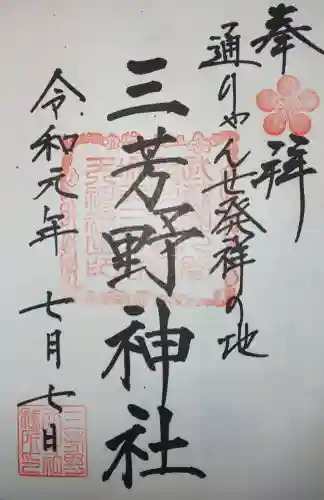 奉拝
通りゃんせ発祥の地
三芳野神社
令和元年 七月七日